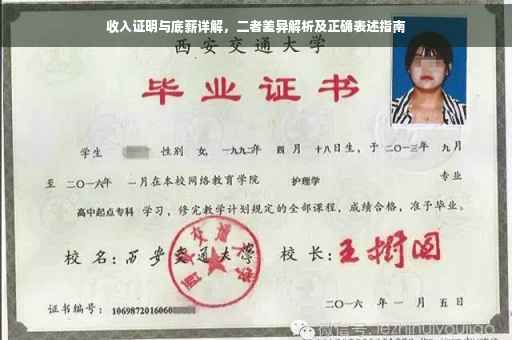 收入证明与底薪详解，二者差异解析及正确表述指南
西安交通大学
毕业证书
学生 性别 女，一九九二年 四月 十八日生，于二〇一三年 九月
至 二〇一六年 一月在本校网络教育学院 护理学 专业
高中起点专科 学习，修完教学计划规定的全部课程，成绩合格，准予毕业。
校名：西安交通大学 校长：王树国
西安交通大学
证书编号：1069872016060
二〇一六年一月五日
微信号:jezhihuiyoujiao